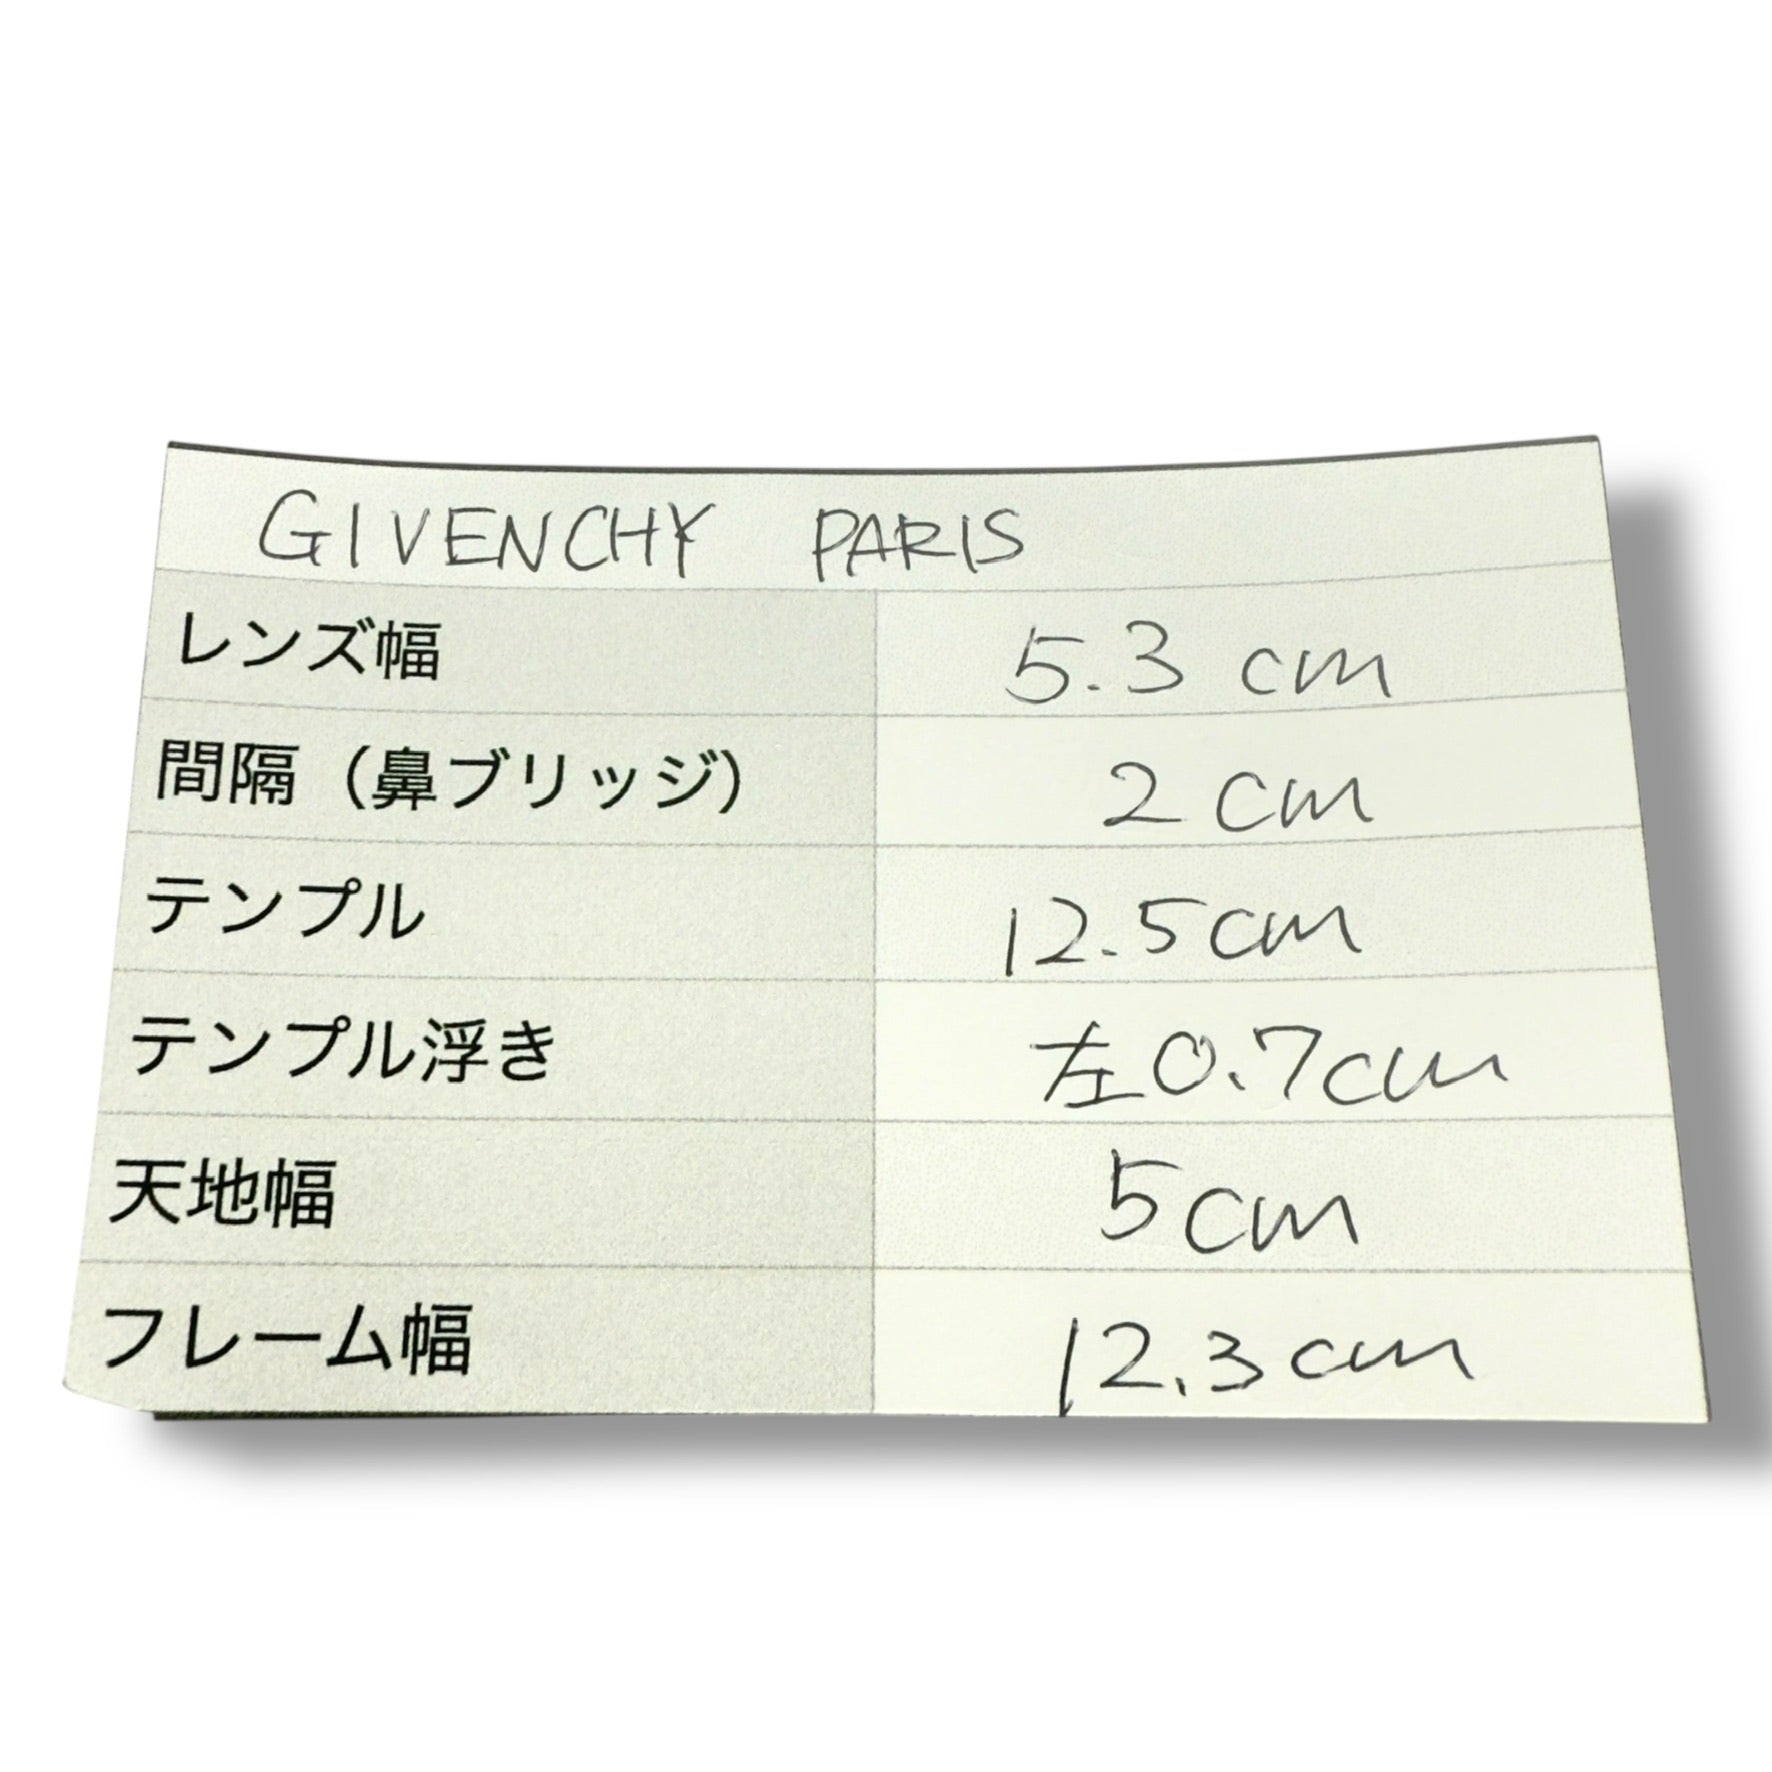 GIVENCHY PARIS
レンズ幅 5.3cm
間隔（鼻ブリッジ） 2cm
テンプル 12.5cm
テンプル浮き 左0.7cm
天地幅 5cm
フレーム幅 12.3cm